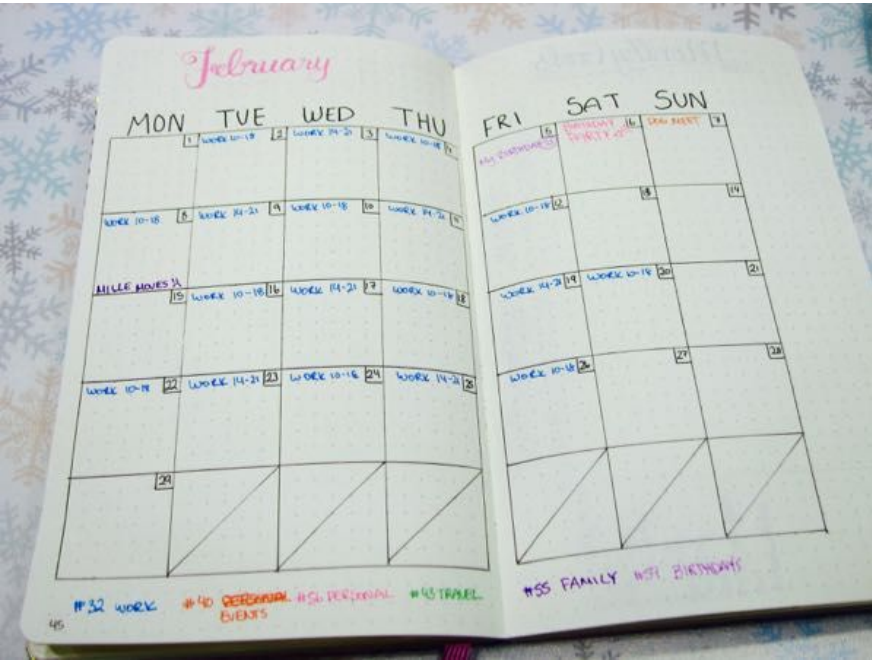 February
MON TUE WED THU FRI SAT SUN
1 WORK 10-18 2 WORK 14-21 3 WORK 10-18 4 MY BIRTHDAY!! 5 BIRTHDAY 6 DOG MEET 7
PARTY
WORK 10-18 8 WORK 14-21 9 WORK 10-18 10 WORK 14-21 11 WORK 10-18 12 13 14
MILLE MOVES
15 WORK 10-18 16 WORK 14-21 17 WORK 10-18 18 WORK 14-21 19 WORK 10-18 20 21
WORK 10-18 22 WORK 14-21 23 WORK 10-18 24 WORK 14-21 25 WORK 10-18 26 27 28
29
#32 WORK #40 PERSONAL #56 PERSONAL #43 TRAVEL #55 FAMILY BIRTHDAYS
EVENTS
45